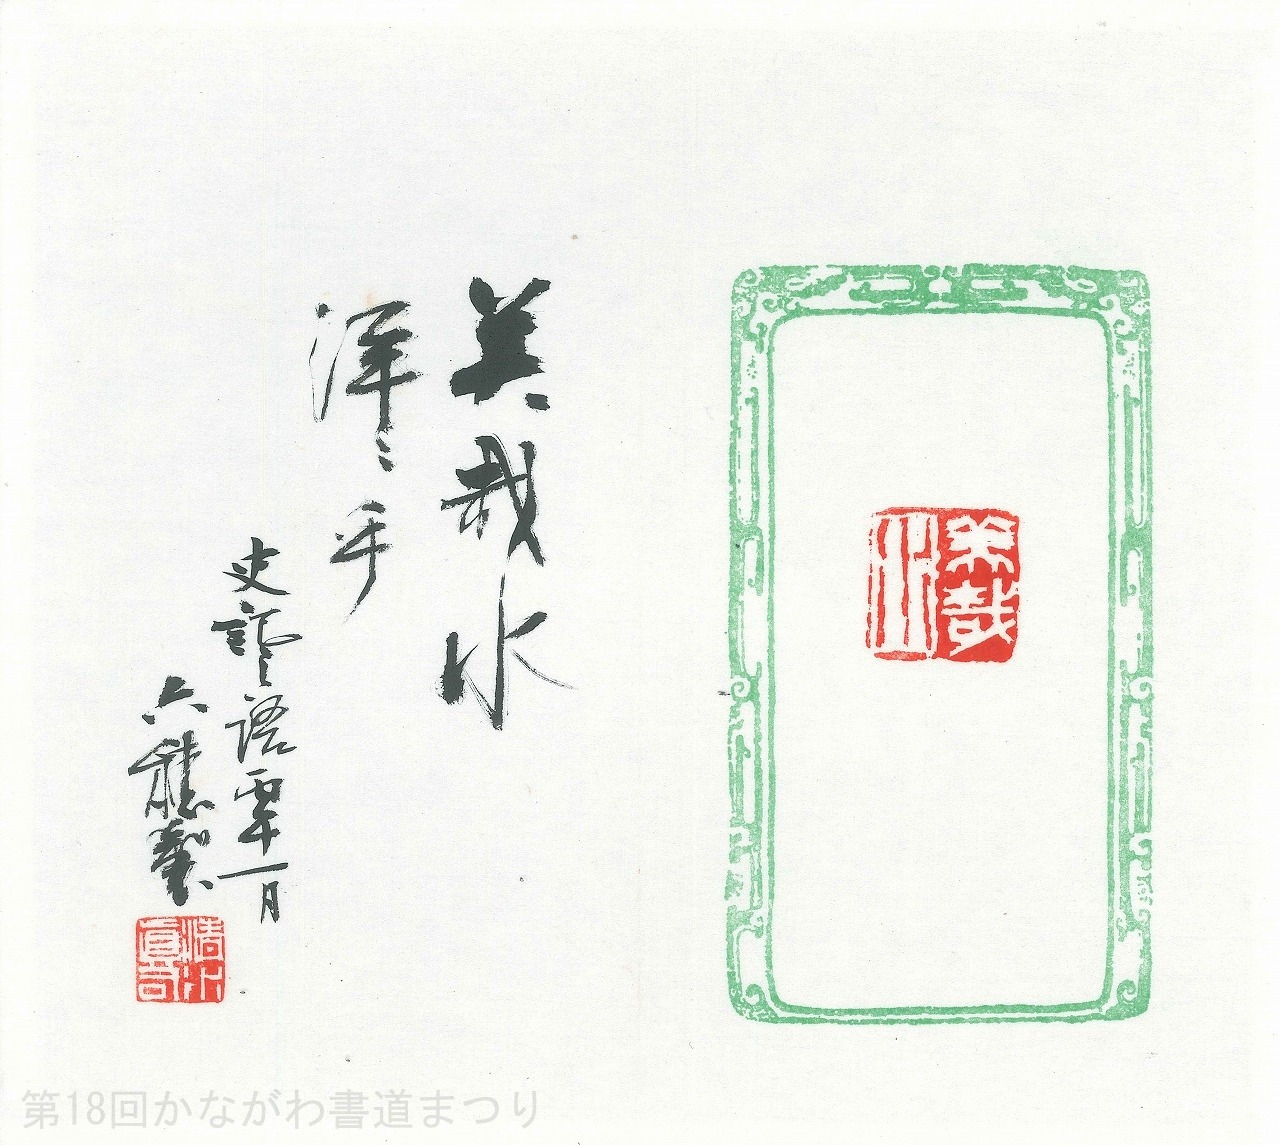 美哉
水
美哉水
洋〻乎
史記之語 十一月
六穂製
第18回かながわ書道まつり